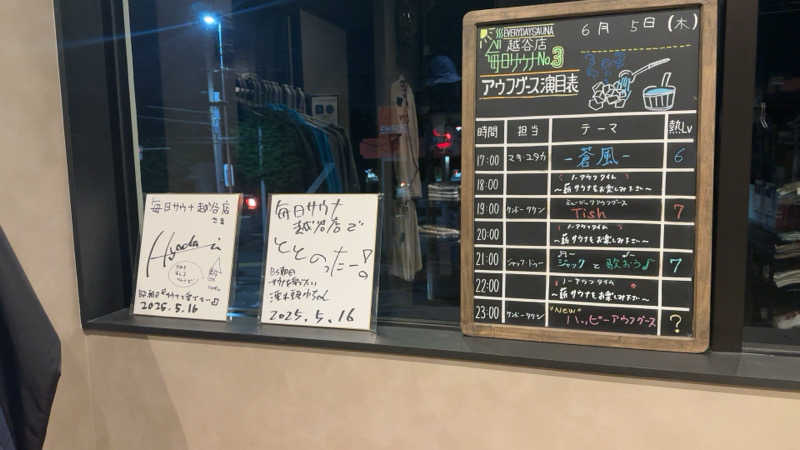 毎日サウナ 越谷店
さま
2025.5.16
毎日サウナ
越谷店で
ととのったー!
BS朝日
2025.5.16
EVERYDAY SAUNA
越谷店
毎日サウナNo.3
アウフグース演目表
6月 5日(木)
時間 担当 テーマ 熱Lv
17:00 マキ・ユタカ -蒼風- 6
18:00 ノーアウフタイム
〜薪サウナもお楽しみ下さい〜
19:00 ケンドー・タケシ ミュージックアウフグース
Tish 7
20:00 ノーアウフタイム
〜薪サウナもお楽しみ下さい〜
21:00 ジャック・ドゥー ジャックと歌おう♪ 7
22:00 ノーアウフタイム
〜薪サウナもお楽しみ下さい〜
23:00 ケンドー・タケシ "New"
ハッピーアウフグース ?